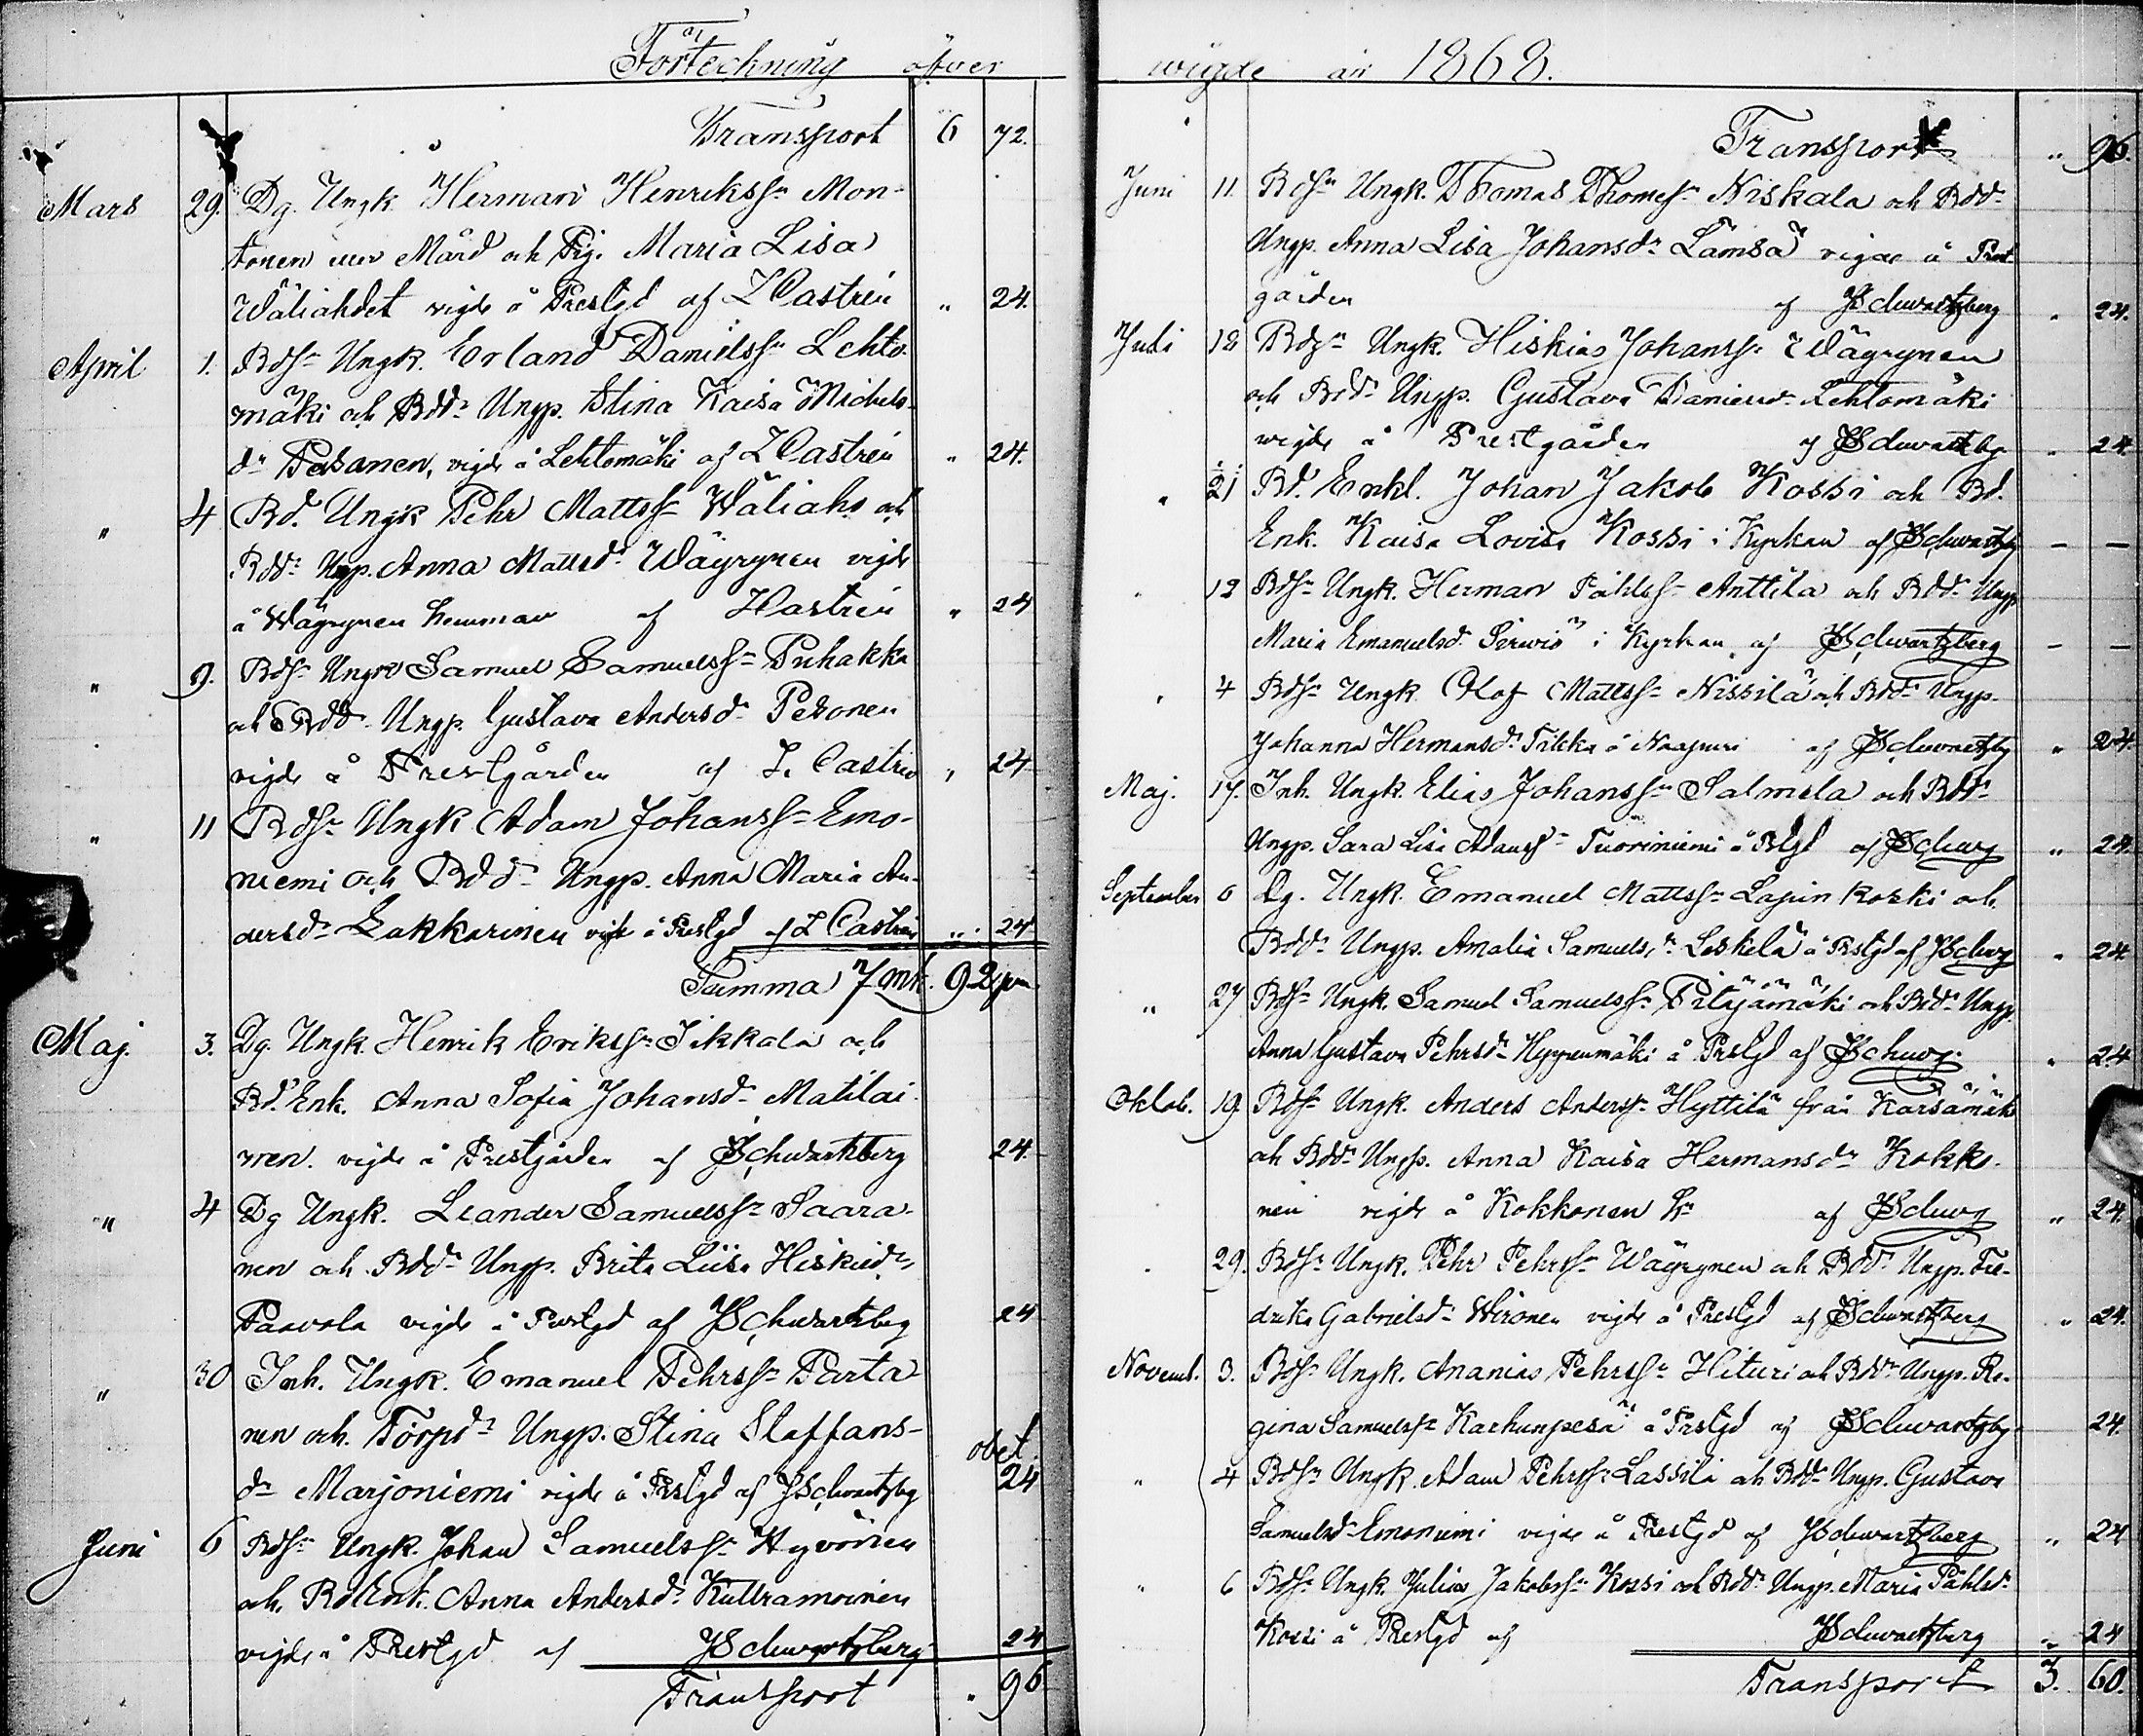 Förteckning öfver
Transport 6 72.
Mars 29. Dg. Ungk. Herman Henrikssn Mon-
tonen och Pig. Maria Lisa
Wäliahdet vigde å Prestgd af Z Castrén „ 24.
April 1. Bdsn Ungk. Erland Danielssn Lehto-
mäki och Bddr Ungp. Stina Kaisa Michels-
dr Pesanen, vigde å Lehtomäki af Z Castrén „ 24.
„ 4 Bd. Ungk Pehr Mattssn Wäliaho och
Bddr Ungp. Anna Mattsdr Wäyrynen vigde
å Wäyrynen hemman af Z Castrén „ 24
„ 9. Bdsn Ungk Samuel Samuelssn Puhakka
och Bddr Ungp. Gustava Andersdr Pesonen
vigde å Prestgården af Z. Castrén „ 24
„ 11 Bdsn Ungk Adam Johanssn Emo-
niemi och Bddr Ungp. Anna Maria An-
dersdr Lakkarinen vigde å Prestgd af Z Castrén „ 24
Summa 7 mk. 92 pn
Maj. 3. Dg. Ungk. Henrik Erikssn Sikkala och
Bd. Enk. Anna Sofia Johansdr Matilai-
nen. vigde å Prestgården af JSchwartzberg 24.
„ 4 Dg Ungk. Leander Samuelssn Saara-
nen och Bddr Ungp. Brita Liisa Hiskiedr
Paavola vigde å Prestgd af JSchwartzbeg 24
„ 30 Inh. Ungk. Emanuel Pehrssn Parta-
nen och Torpdr Ungp. Stina Staffans-
obet.
dr Marjoniemi vigde å Prstgd af JSchwartzbg 24
Juni 6 Bdsn Ungk. Johan Samuelssn Hyvönen
och Bd Enk. Anna Andersdr
vigde å Prestgd af JSchwartzberg 24
Transport „ 96
wigde år 1868.
Transport „ 96.
Juni 11. Bdsn Ungk. Thomas Thomessn Niskala och Bddr
Ungp. Anna Lisa Johansdr Lämsä vigde å Prest
gården af JSchwartzberg „ 24.
Juli 12 Bdsn Ungk. Hiskias Johanssn Wäyrynen
och Bddr Ungp. Gustava Danielsdr Lehtomäki
wigde å Prestgården af JSchwartzbg „ 24.
„ 21 Bd. Enkl. Johan Jakob Kossi och Bd.
Enk. Kaisa Lovisa Kossi i Kyrkan af JSchwartzbg — —
„ 12 Bdsn Ungk. Herman Påhlssn Anttila och Bddr Ungp
Maria Emanuelsdr Sirwiö i Kyrkan af JSchwartzberg — —
„ 4 Bdsn Ungk. Olof Mattssn Nissilä och Bddr Ungp.
Johanna Hermansdr Tikka å af JSchwartzbg „ 24.
Maj. 17. Inh. Ungk. Elias Johanssn Salmela och Bddr
Ungp. Sara Lisa Tuoriniemi å Prstgd af JSchwg „ 24.
September 6 Dg. Ungk. Emanuel Mattssn Lapinkoski och
Bddr Ungp. Amalia Samuelsdr Leskelä å Prstgd af JSchwg „ 24
„ 27 Bdsn Ungk. Samuel Samuelssn Pitäjämäki och Bddr Ungp.
Anna Gustava Pehrsdr Hyypenmäki å Prstgd af JSchwg. „ 24
Oktob. 19. Bdsn Ungk. Anders Anderssn Hyttilä från Kärsämäki
och Bddr Ungp. Anna Kaisa Hermansdr Kokko-
nen vigde å Kokkonen hn af JSchwg „ 24.
„ 29. Bdsn Ungk. Pehr Pehrssn Wäyrynen och Bddr Ungp. Fre-
drika Gabrielsdr Wironen vigde å Prestgd af JSchwartzberg „ 24.
Novemb. 3. Bdsn Ungk. Ananias Pehrssn Hituri och Bddr Ungp. Re-
gina Samuelssn Karhunpesä å Prstgd af JSchwartzbg. 24.
„ 4 Bdsn Ungk. Adam Pehrssn Lassila och Bddr Ungp. Gustava
Samuelsdr Emoniemi vigde å Prestgd af JSchwartzberg „ 24
„ 6 Bdsn Ungk. Julius Jakobssn Kossi och Bddr Ungp. Maria Påhlsdr
Kossi å Prestgd af JSchwartzberg „ 24
Transport 3. 60.